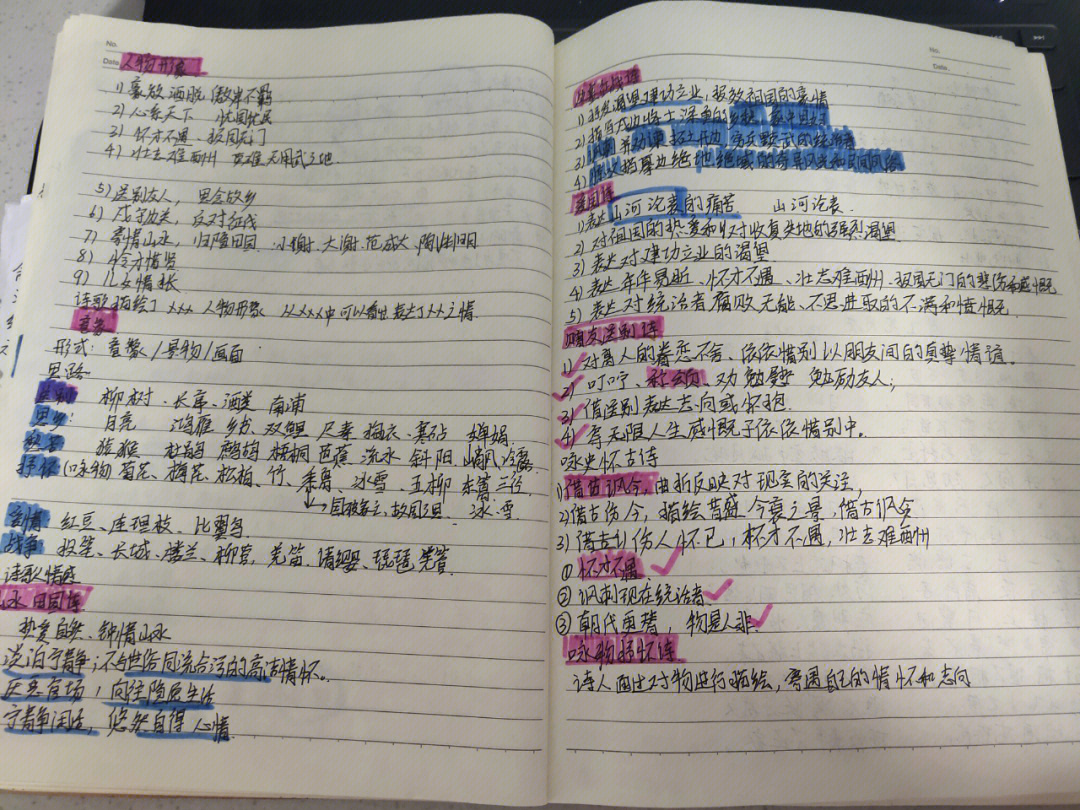 No.
Date.
人物形象
1) 豪放洒脱 傲岸不羁
2) 心系天下 忧国忧民
3) 怀才不遇、报国无门
4) 壮志难酬 英雄无用武之地
5) 送别友人, 思念故乡
6) 反对征战
7) 寄情山水, 归隐田园 小谢、大谢、范成大、陶渊明
8)
9) 儿女情长
诗歌描绘了xxx 人物形象 从xxx中可以看出表达了xx之情
形式: 意象/景物/画面
思路
送别 柳树、长亭、酒 南浦
思乡: 月亮 鸿雁 双鲤 尺素 捣衣 寒砧 婵娟
猿猴 杜鹃 鹧鸪 梧桐 芭蕉 流水 斜阳
抒怀(咏物) 菊花、梅花、松柏、竹、 冰雪、五柳 东篱 三径
冰、雪
爱情 红豆、连理枝、比翼鸟
战争 投笔、长城、楼兰、柳营、羌笛、请缨、琵琶
诗歌情感
山水田园诗
热爱自然、钟情山水
淡泊宁静; 不与世俗同流合污的高洁情怀。
厌恶官场, 向往隐居生活
宁静闲适, 悠然自得 心情
No.
Date.
1) 抒发渴望建功立业, 报效祖国的豪情
2) 指写戍边将士深重的乡愁,
3) 讽刺并劝谏拓土开边、穷兵黩武的统治者
4) 描摹边绝地绝域的奇异风光和民俗风俗
爱国诗
1) 表达山河沦丧的痛苦 山河沦丧.
2) 对祖国的热爱和对收复失地的强烈渴望
3) 表达对建功立业的渴望
4) 表达年华易逝、怀才不遇、壮志难酬、报国无门的悲伤和感慨
5) 表达对统治者腐败无能、不思进取的不满和愤慨
朋友送别诗
1) 对离人的眷恋不舍、依依惜别以朋友间的真挚情谊。
2) 叮咛、称颂、劝勉 勉励友人;
3) 借送别表达志向或怀抱
4) 寄无限人生感慨于依依惜别中。
咏史怀古诗
1) 借古讽今, 曲折反映对现实的关注,
2) 借古伤今, 描绘昔盛今衰之景, 借古讽今
3) 借古伤人怀己, 怀才不遇, 壮志难酬
① 怀才不遇
② 讽刺现在统治者
③ 朝代更替, 物是人非
咏物抒怀诗
诗人通过对物进行描绘, 寄寓自己的情怀和志向